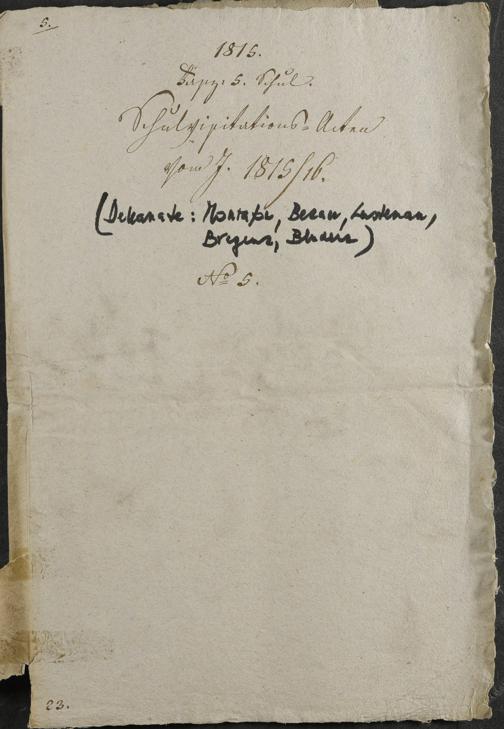 5.
1815.
Schul.
Schulvisitations-Acten
vom J. 1815/16.
(Dekanate: Montafon, Bezau, Lustenau,
Bregenz, Bludenz)
No 5.
23.